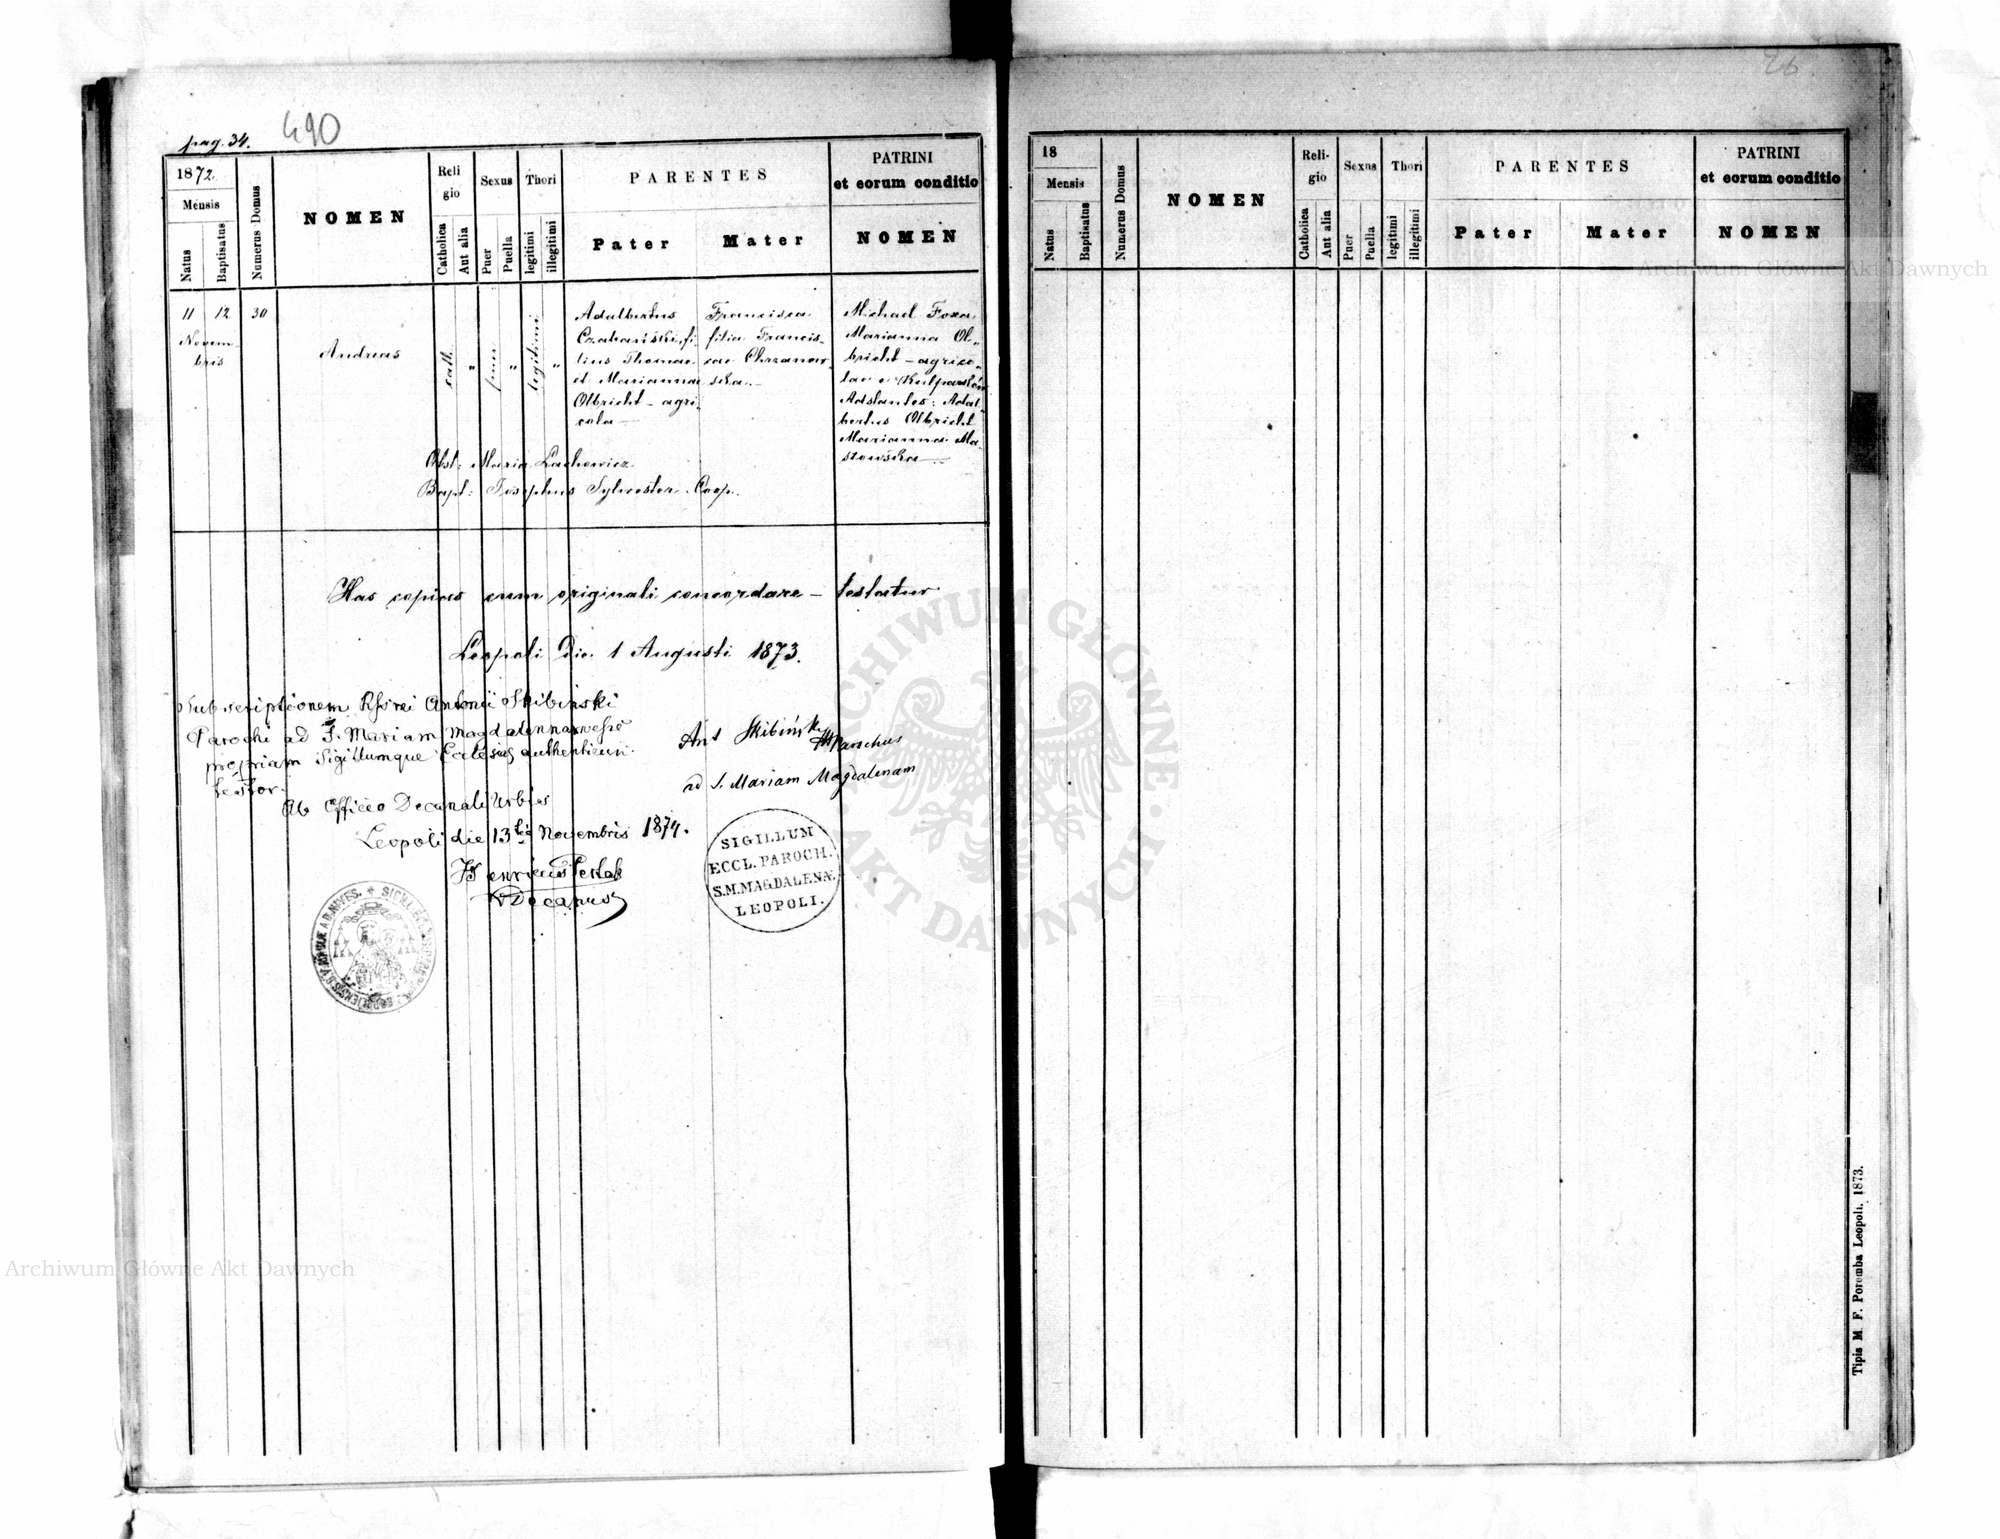 pag. 34.
490
1872.
Mensis
Natus
Baptisatus
Numerus Domus
NOMEN
Reli
gio
Catholica
Aut alia
Sexus
Puer
Puella
Thori
legitimi
illegitimi
PARENTES
Pater
Mater
PATRINI
et eorum conditio
NOMEN
11
Novem-
bris
12
30
Andreas
cath.
"
puer
"
legitimi
"
Adalbertus
Czabański fi
lius Thomae
et Mariannae
Olbricht - agri-
cola —
Francisca
filia Francis-
cae Chrzanow-
ska. -
Michael Foxa,
Marianna Ol-
bricht - agrico-
lae e Kulparków
Adstantes: Adal-
bertus Olbricht
Marianna Ma-
stowska —
Obst: Maria Lachowicz
Bapt: Josephus Sylwester. Coop.
Has copias cum originali concordare — testatur
Leopoli Die 1 Augusti 1873.
Subscriptionem Antonii Skibiński
Parochi ad S. Mariam Magdalenam
propriam Sigillumque Eclesiae authenticum
testor.
Ab Officio Decanali Urbis
Leopoli die 13 Novembris 1874.
Henricus
Decanus
Ant Skibiński
Parochus
ad S. Mariam Magdalenam
SIGILLUM
ECCL. PAROCH.
S.M. MAGDALENÆ
LEOPOLI.
26
18
Mensis
Natus
Baptisatus
Numerus Domus
NOMEN
Reli-
gio
Catholica
Aut alia
Sexus
Puer
Puella
Thori
legitimi
illegitimi
PARENTES
Pater
Mater
PATRINI
et eorum conditio
NOMEN
Tipis M. F. Poremba Leopoli. 1873.
Archiwum Główne Akt Dawnych
ARCHIWUM GŁÓWNE
AKT DAWNYCH
Archiwum Główne Akt Dawnych